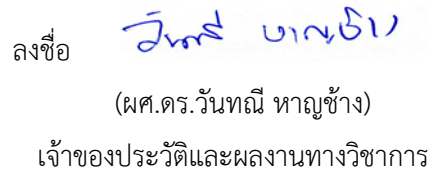 ลงชื่อ วันทณี หาญช้าง
(ผศ.ดร.วันทณี หาญช้าง)
เจ้าของประวัติและผลงานทางวิชาการ